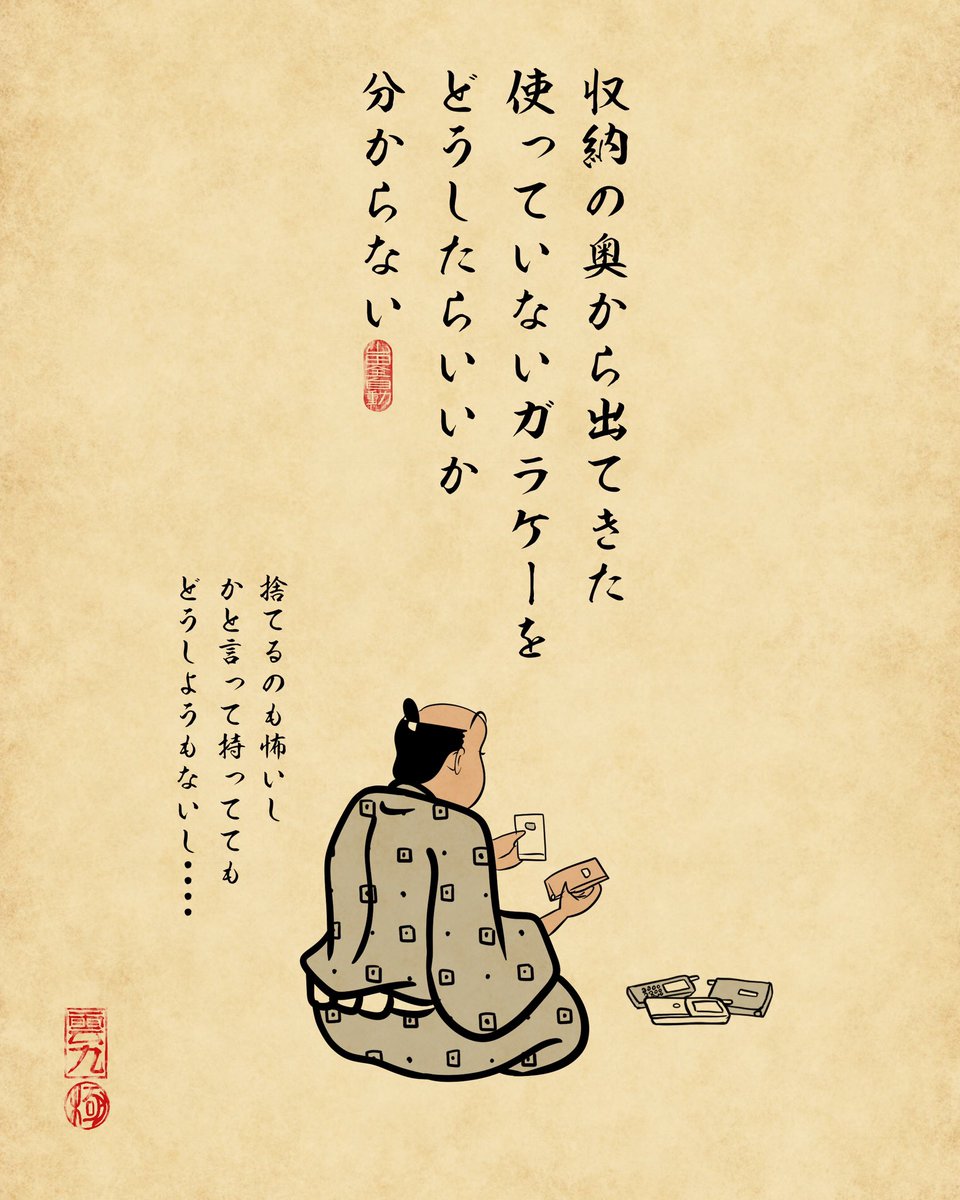 収納の奥から出てきた
使っていないガラケーを
どうしたらいいか
分からない
捨てるのも怖いし
かと言って持ってても
どうしようもないし・・・・